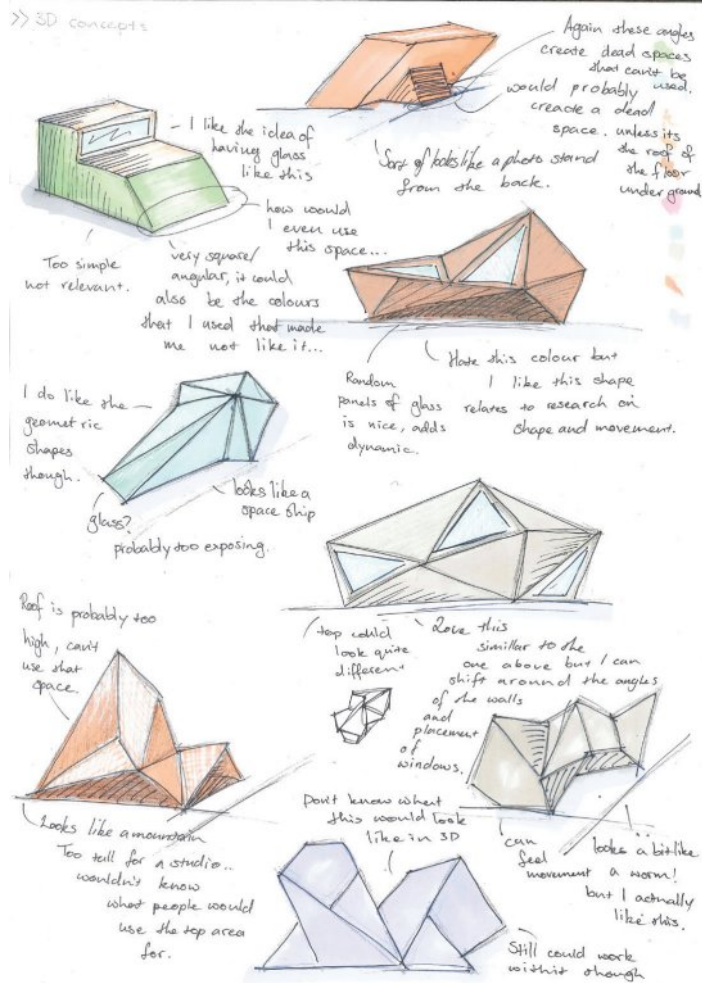 >> 3D concepts
Again these angles
create dead spaces
that can't be
used.
would probably
creacte a dead
space. unless its
the roof of
the floor
under ground
Sort of looks like a photo stand
from the back.
I like the idea of
having glass
like this
how would
I even use
this space...
Too simple
not relevant.
very square/
angular, it could
also be the colours
that I used that made
me not like it...
Random
panels of glass
is nice, adds
dynamic.
Hate this colour but
I like this shape
relates to research on
shape and movement.
I do like the
geometric
shapes
though.
glass?
probably too exposing.
looks like a
space ship
top could
look quite
different
Love this
simillar to the
one above but I can
shift around the angles
of the walls
and
placement
of
windows.
Roof is probably too
high, can't
use that
space.
Looks like a mountain
Too tall for a studio..
wouldn't know
what people would
use the top area
for.
Don't know what
this would look
like in 3D
can
feel
movement
looks a bit like
a worm!
but I actually
like this.
Still could work
with it though